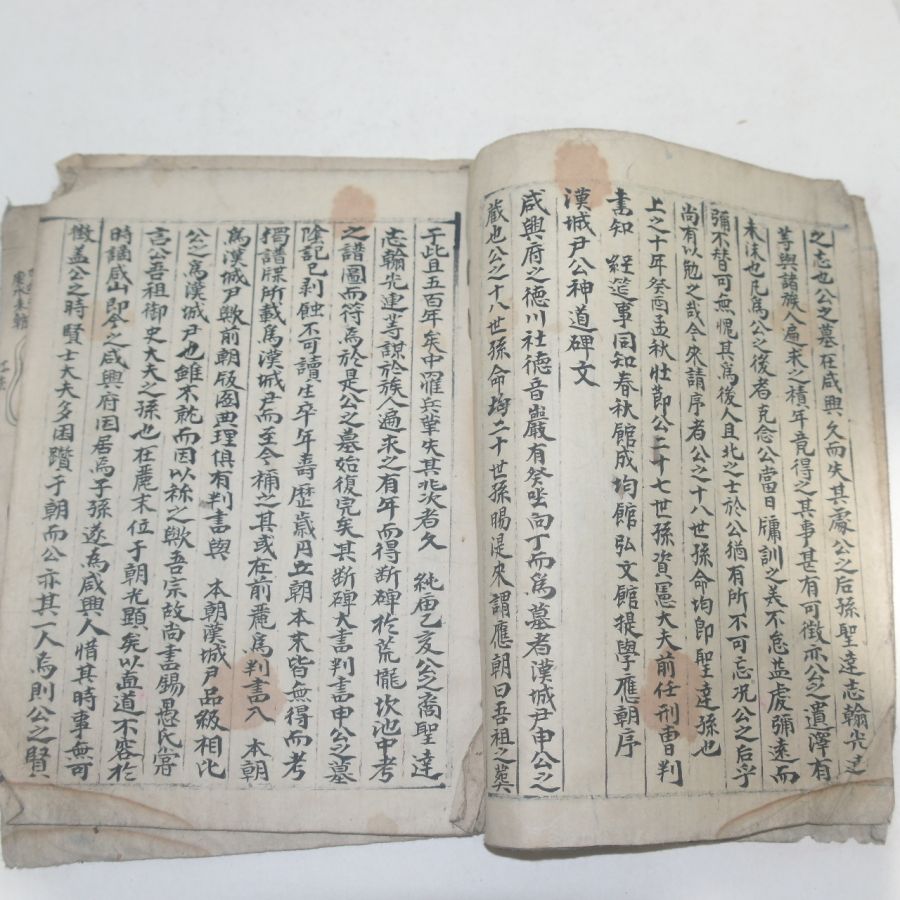 之志也公之墓在咸興久而失其處公之后孫聖達志翰光達
等與諸族人遍求之積年竟得之其事甚有可徵亦公之遺澤有
未沫也凡爲公之後者克念公當日牖訓之美不怠益虔彌遠而
彌不替可無愧其爲後人且北之士於公猶有所不可忘况公之后乎
尚有以勉之哉今來請序者公之十八世孫命均即聖達孫也
上之十年癸酉孟秋壯節公二十七世孫資憲大夫前任刑曹判
書知 經筵事同知春秋館成均館弘文館提學應朝序
漢城尹公神道碑文
咸興府之德川社德音巖有癸坐向丁而爲墓者漢城尹申公之
藏也公之十八世孫命均二十世孫賜湜來謂應朝曰吾祖之葬
于此且五百年矣中罹兵葷失其兆次者久 純庙乙亥公之裔聖達
志翰光連等謀於族人遍求之有年而得断碑於荒隴坎池中考
之譜圖而符焉於是公之墓始復完矣其断碑大書判書申公之墓
陰記已剥蝕不可讀生卒年壽歷歲月立朝本末皆無得而考
獨譜牒所載爲漢城尹而至今稱之其或在前麗爲判書入 本朝
爲漢城尹歟前朝版图典理俱有判書與 本朝漢城尹品級相比
公之爲漢城尹也雖不就而因以稱之歟吾宗故尚書錫愚氏嘗
言公吾祖御史大夫之孫也在麗末位于朝光顯矣以直道不容於
時謫咸山即今之咸興府因居焉子孫遂爲咸興人惜其時事無可
徵盖公之時賢士大夫多困躓于朝而公亦其一人焉則公之賢